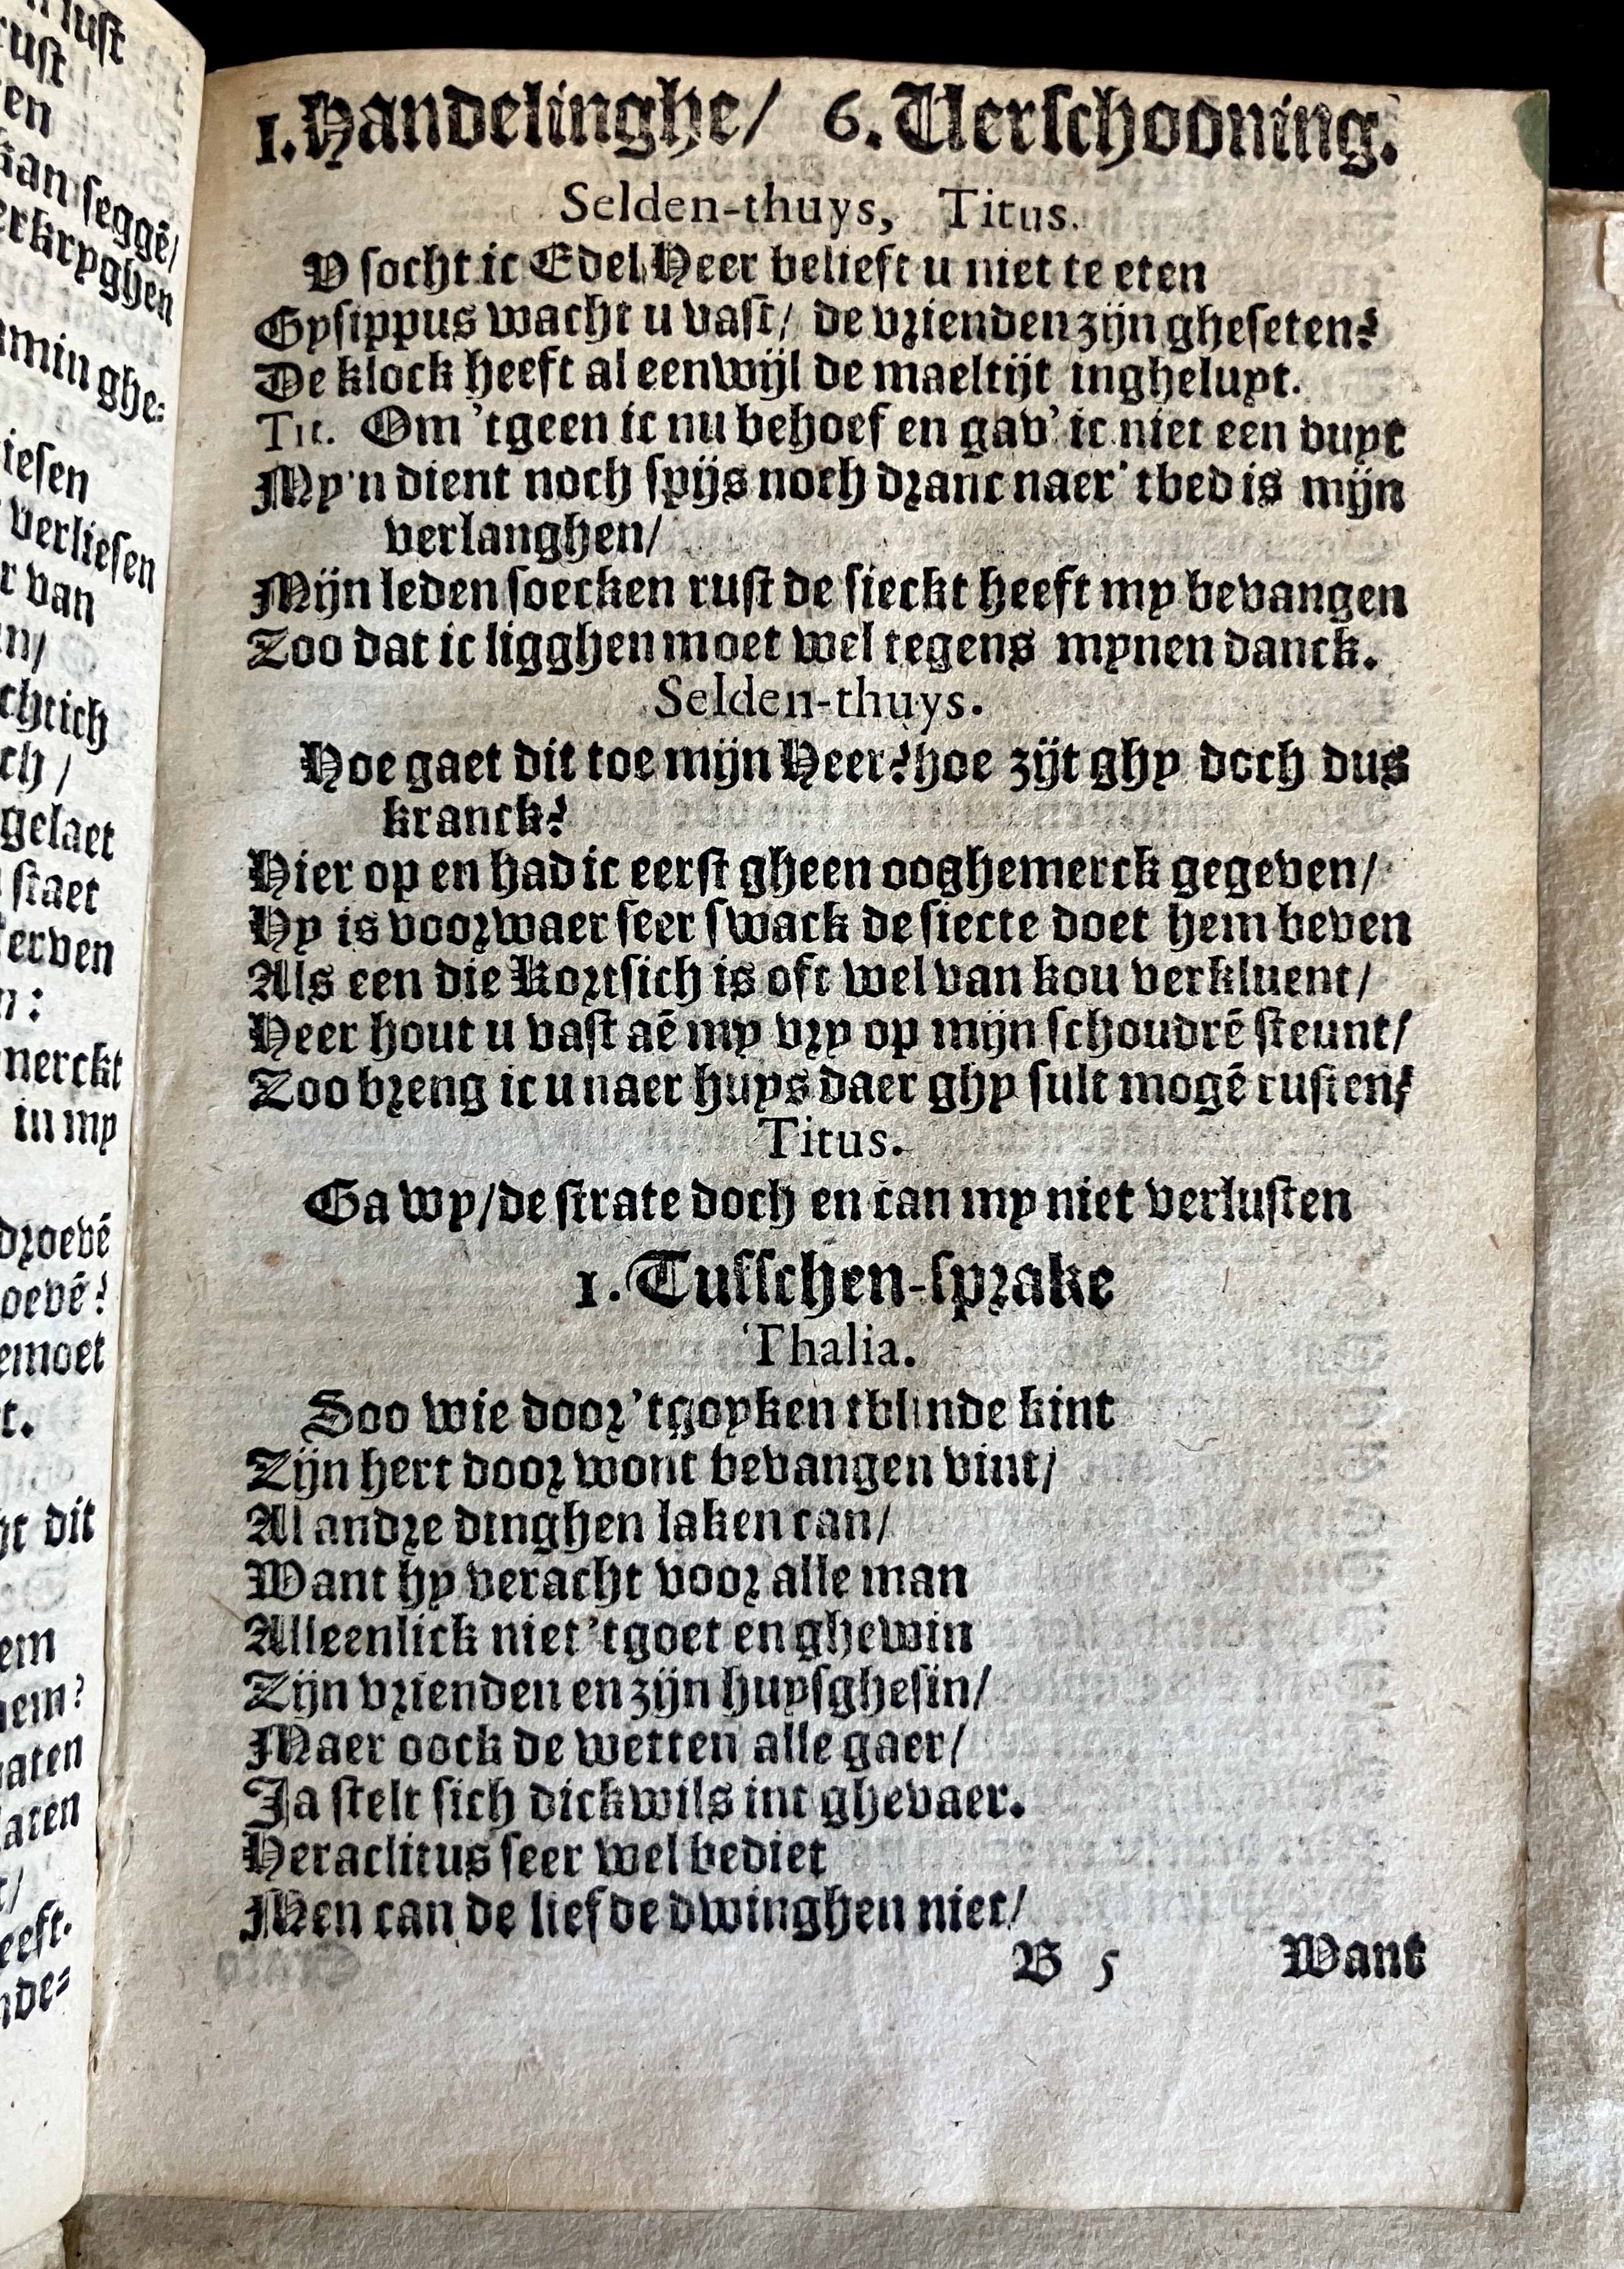 1. Handelinghe/ 6. Verschooning.
Selden-thuys, Titus.
V socht ic Edel Heer belieft u niet te eten
Gysippus wacht u vast/ de vrienden zijn gheseten?
De klock heeft al eenwijl de maeltijt inghelupt.
Tit. Om 'tgeen ic nu behoef en gav' ic niet een dupt
My'n dient noch spijs noch dranc naer' tbed is mijn
verlanghen/
Mijn leden soecken rust de sieckt heeft my bevangen
Zoo dat ic ligghen moet wel tegens mynen danck.
Selden-thuys.
Hoe gaet dit toe mijn Heer? hoe zijt ghy doch dus
kranck?
Hier op en had ic eerst gheen ooghemerck gegeven/
Hy is voorwaer seer swack de siecte doet hem beven
Als een die Kortsich is oft wel van kou verkluent/
Heer hout u vast aē my vry op mijn schoudrē steunt/
Zoo breng ic u naer huys daer ghy sult mogē rusten/
Titus.
Ga wy/de strate doch en can my niet verlusten
1. Tusschen-sprake
Thalia.
Soo wie door 'tgoyken tblinde kint
Zijn hert doorwont bevangen vint/
Al andre dinghen laken can/
Want hy veracht voor alle man
Alleenlick niet 'tgoet en ghewin
Zijn vrienden en zijn huysghesin/
Maer oock de wetten alle gaer/
Ja stelt sich dickwils int ghevaer.
Heraclitus seer wel bediet
Men can de liefde dwinghen niet/
B 5 Want